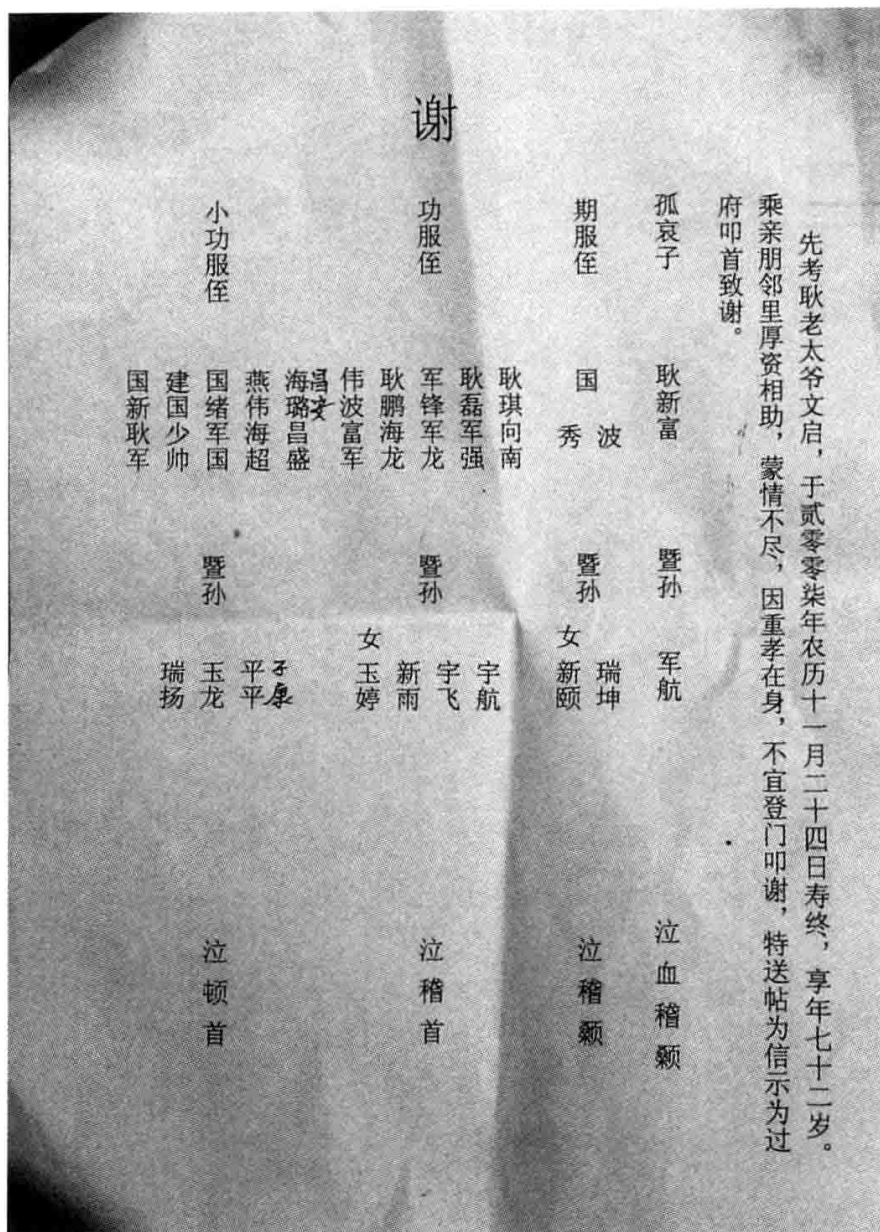 先考耿老太爷文启，于贰零零柒年农历十一月二十四日寿终，享年七十二岁。
乘亲朋邻里厚资相助，蒙情不尽，因重孝在身，不宜登门叩谢，特送帖为信示为过
府叩首致谢。
孤哀子 耿新富 暨孙 军航 泣血稽颡
期服侄 国 波 秀 暨孙 瑞坤 女新颐 泣稽颡
谢
功服侄 暨孙 泣稽首
耿琪向南
耿磊军强
军锋军龙
耿鹏海龙
伟波富军
宇航
宇飞
新雨
女玉婷
小功服侄 暨孙 泣顿首
昌安
海璐昌盛
燕伟海超
国绪军国
建国少帅
国新耿军
子康
平平
玉龙
瑞扬